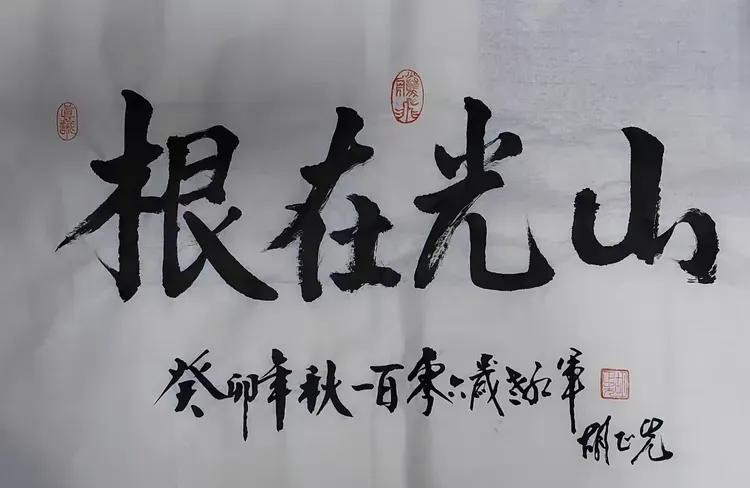 根在光山
癸卯年秋一百零六歲老红軍
胡正先